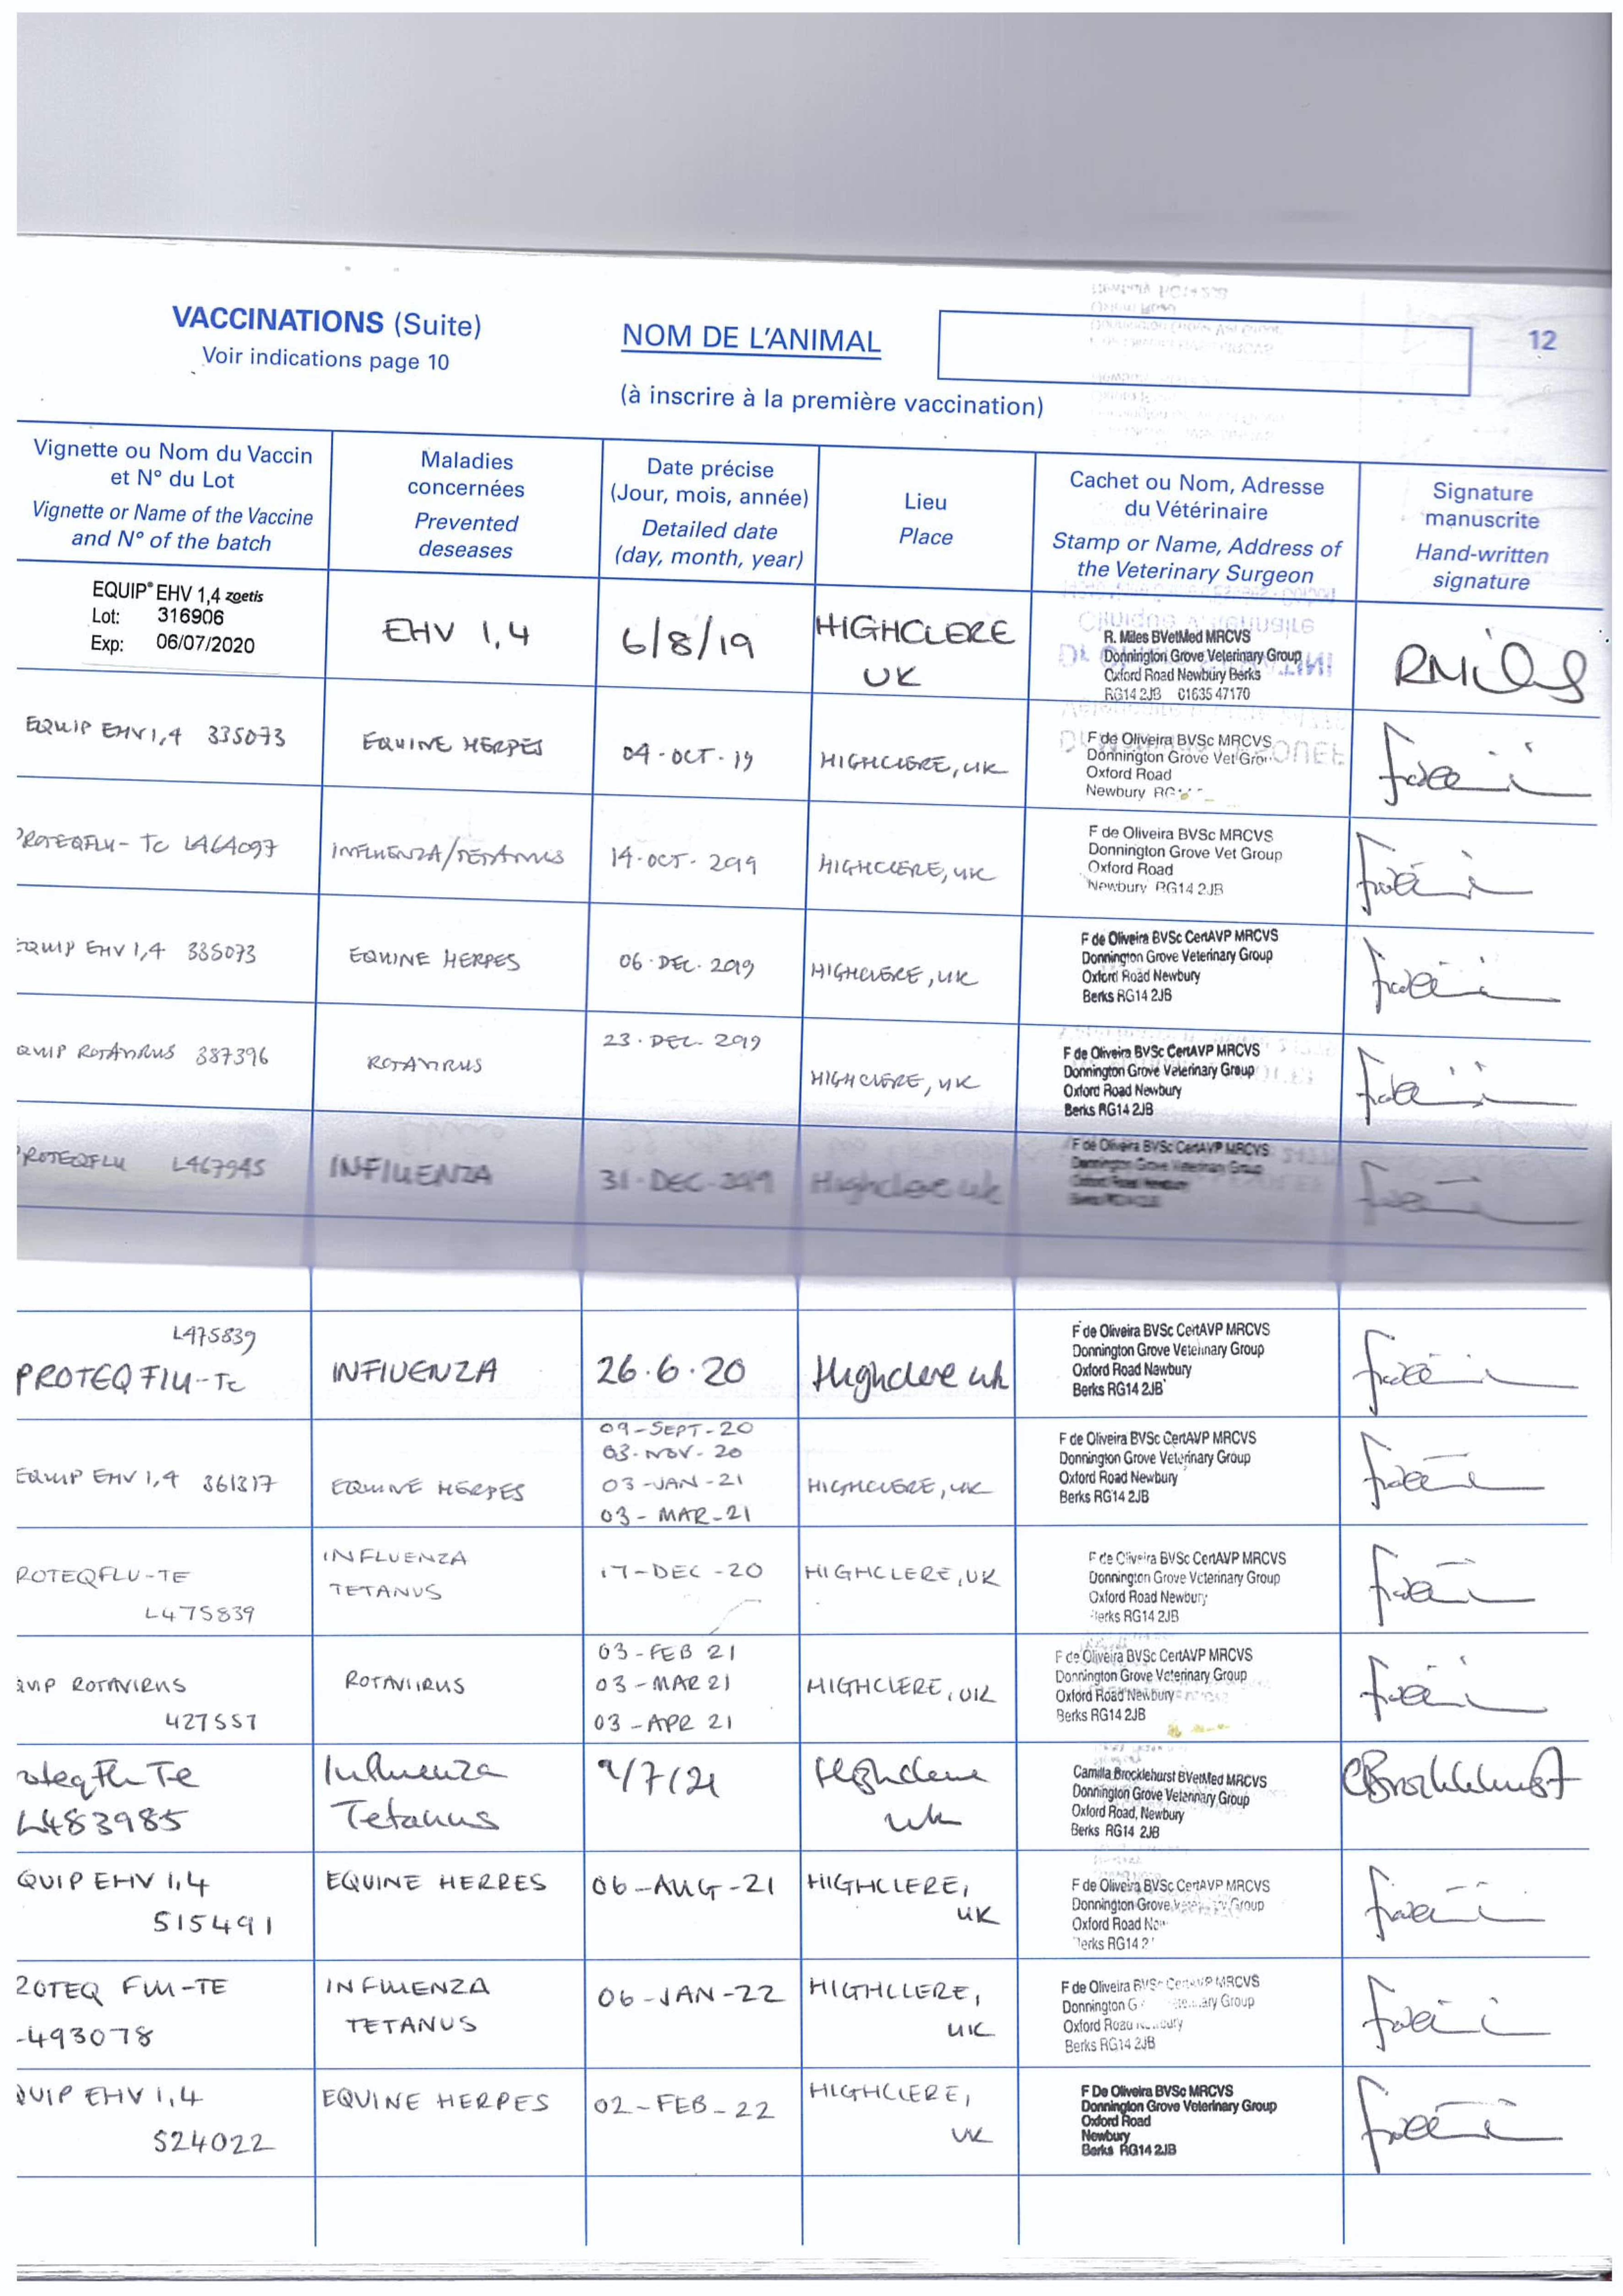 VACCINATIONS (Suite)
Voir indications page 10
NOM DE L'ANIMAL
(à inscrire à la première vaccination)
12
Vignette ou Nom du Vaccin
et N° du Lot
Vignette or Name of the Vaccine
and N° of the batch
Maladies
concernées
Prevented
deseases
Date précise
(Jour, mois, année)
Detailed date
(day, month, year)
Lieu
Place
Cachet ou Nom, Adresse
du Vétérinaire
Stamp or Name, Address of
the Veterinary Surgeon
Signature
manuscrite
Hand-written
signature
EQUIP® EHV 1,4 zoetis
Lot: 316906
Exp: 06/07/2020
EHV 1,4
6/8/19
HIGHCLERE
UK
R. Miles BVetMed MRCVS
Donnington Grove Veterinary Group
Oxford Road Newbury Berks
RG14 2JB 01635 47170
RMiles
EQUIP EHV 1,4 335073
EQUINE HERPES
04-OCT-19
HIGHCLERE, UK
F de Oliveira BVSc MRCVS
Donnington Grove Vet Gro
Oxford Road
Newbury RG
PROTEQFLU-Te L464097
INFLUENZA/TETANUS
14-OCT-2019
HIGHCLERE, UK
F de Oliveira BVSc MRCVS
Donnington Grove Vet Group
Oxford Road
Newbury RG14 2JB
EQUIP EHV 1,4 335073
EQUINE HERPES
06-DEC-2019
HIGHCLERE, UK
F de Oliveira BVSc CertAVP MRCVS
Donnington Grove Veterinary Group
Oxford Road Newbury
Berks RG14 2JB
QUIP ROTAVIRUS 387396
ROTAVIRUS
23-DEC-2019
HIGHCLERE, UK
F de Oliveira BVSc CertAVP MRCVS
Donnington Grove Veterinary Group
Oxford Road Newbury
Berks RG14 2JB
PROTEQFLU L467945
INFLUENZA
31-DEC-2019
Highclere uk
F de Oliveira BVSc CertAVP MRCVS
Donnington Grove Veterinary Group
Oxford Road Newbury
Berks RG14 2JB
L475839
PROTEQ FLU-Te
INFLUENZA
26.6.20
Highclere uk
F de Oliveira BVSc CertAVP MRCVS
Donnington Grove Veterinary Group
Oxford Road Newbury
Berks RG14 2JB
EQUIP EHV 1,4 361317
EQUINE HERPES
09-SEPT-20
03-NOV-20
03-JAN-21
03-MAR-21
HIGHCLERE, UK
F de Oliveira BVSc CertAVP MRCVS
Donnington Grove Veterinary Group
Oxford Road Newbury
Berks RG14 2JB
ROTEQFLU-TE
L475839
INFLUENZA
TETANUS
17-DEC-20
HIGHCLERE, UK
F de Oliveira BVSc CertAVP MRCVS
Donnington Grove Veterinary Group
Oxford Road Newbury
Berks RG14 2JB
QUIP ROTAVIRUS
427557
ROTAVIRUS
03-FEB 21
03-MAR 21
03-APR 21
HIGHCLERE, UK
F de Oliveira BVSc CertAVP MRCVS
Donnington Grove Veterinary Group
Oxford Road Newbury
Berks RG14 2JB
oteqFlu Te
L483985
Influenza
Tetanus
9/7/21
Highclere
uk
Camilla Brocklehurst BVetMed MRCVS
Donnington Grove Veterinary Group
Oxford Road, Newbury
Berks RG14 2JB
CBrocklehurst
QUIP EHV 1,4
515491
EQUINE HERPES
06-AUG-21
HIGHCLERE,
UK
F de Oliveira BVSc CertAVP MRCVS
Donnington Grove Group
Oxford Road
Berks RG14 2
ROTEQ FLU-TE
-493078
INFLUENZA
TETANUS
06-JAN-22
HIGHCLERE,
UK
F de Oliveira BVSc CertAVP MRCVS
Donnington G Group
Oxford Road
Berks RG14 2JB
QUIP EHV 1,4
524022
EQUINE HERPES
02-FEB-22
HIGHCLERE,
UK
F De Oliveira BVSc MRCVS
Donnington Grove Veterinary Group
Oxford Road
Newbury
Berks RG14 2JB